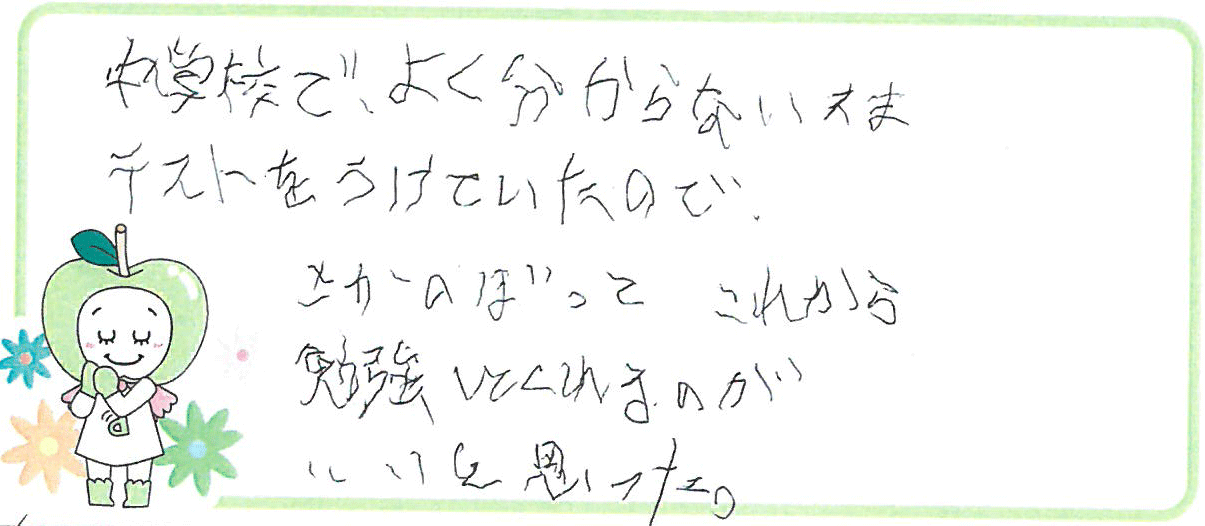 中学校で、よく分からないまま
テストをうけていたので、
さかのぼって これから
勉強してくれるのが
いいと思った。